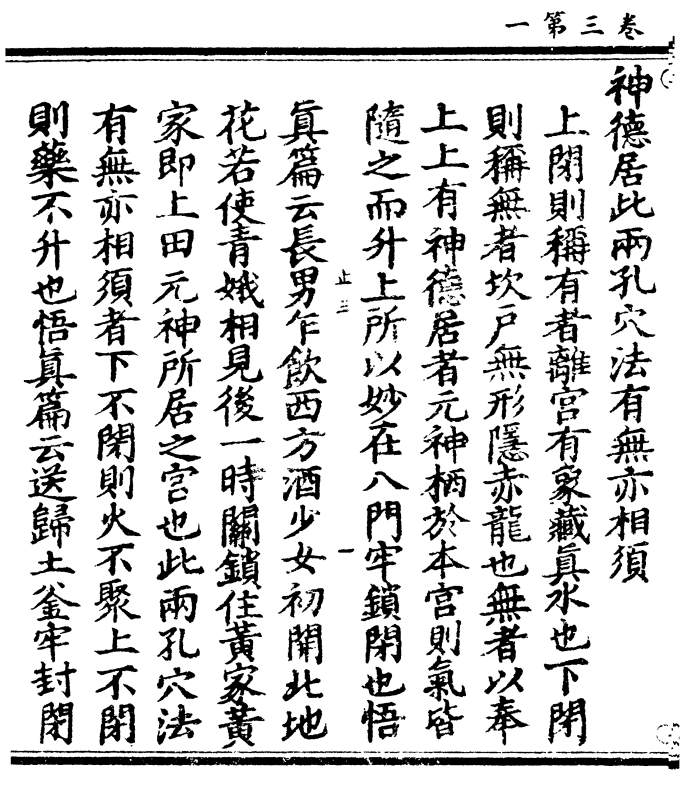 卷三第一
神德居此兩孔穴法有無亦相須
上閉則稱有者離宮有象藏眞水也下閉
則稱無者坎戶無形隱赤龍也無者以奉
上上有神德居者元神栖於本宮則氣皆
隨之而升上所以妙在八門牢鎖閉也悟
眞篇云長男乍飲西方酒少女初開北地
花若使青娥相見後一時關鎖住黃家黃
家即上田元神所居之宮也此兩孔穴法
有無亦相須者下不閉則火不聚上不閉
則藥不升也悟眞篇云送歸土釜牢封閉